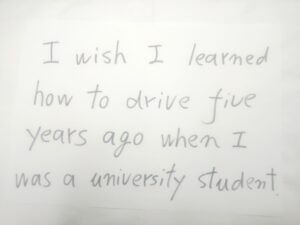 I wish I learned
how to drive five
years ago when I
was a university student.